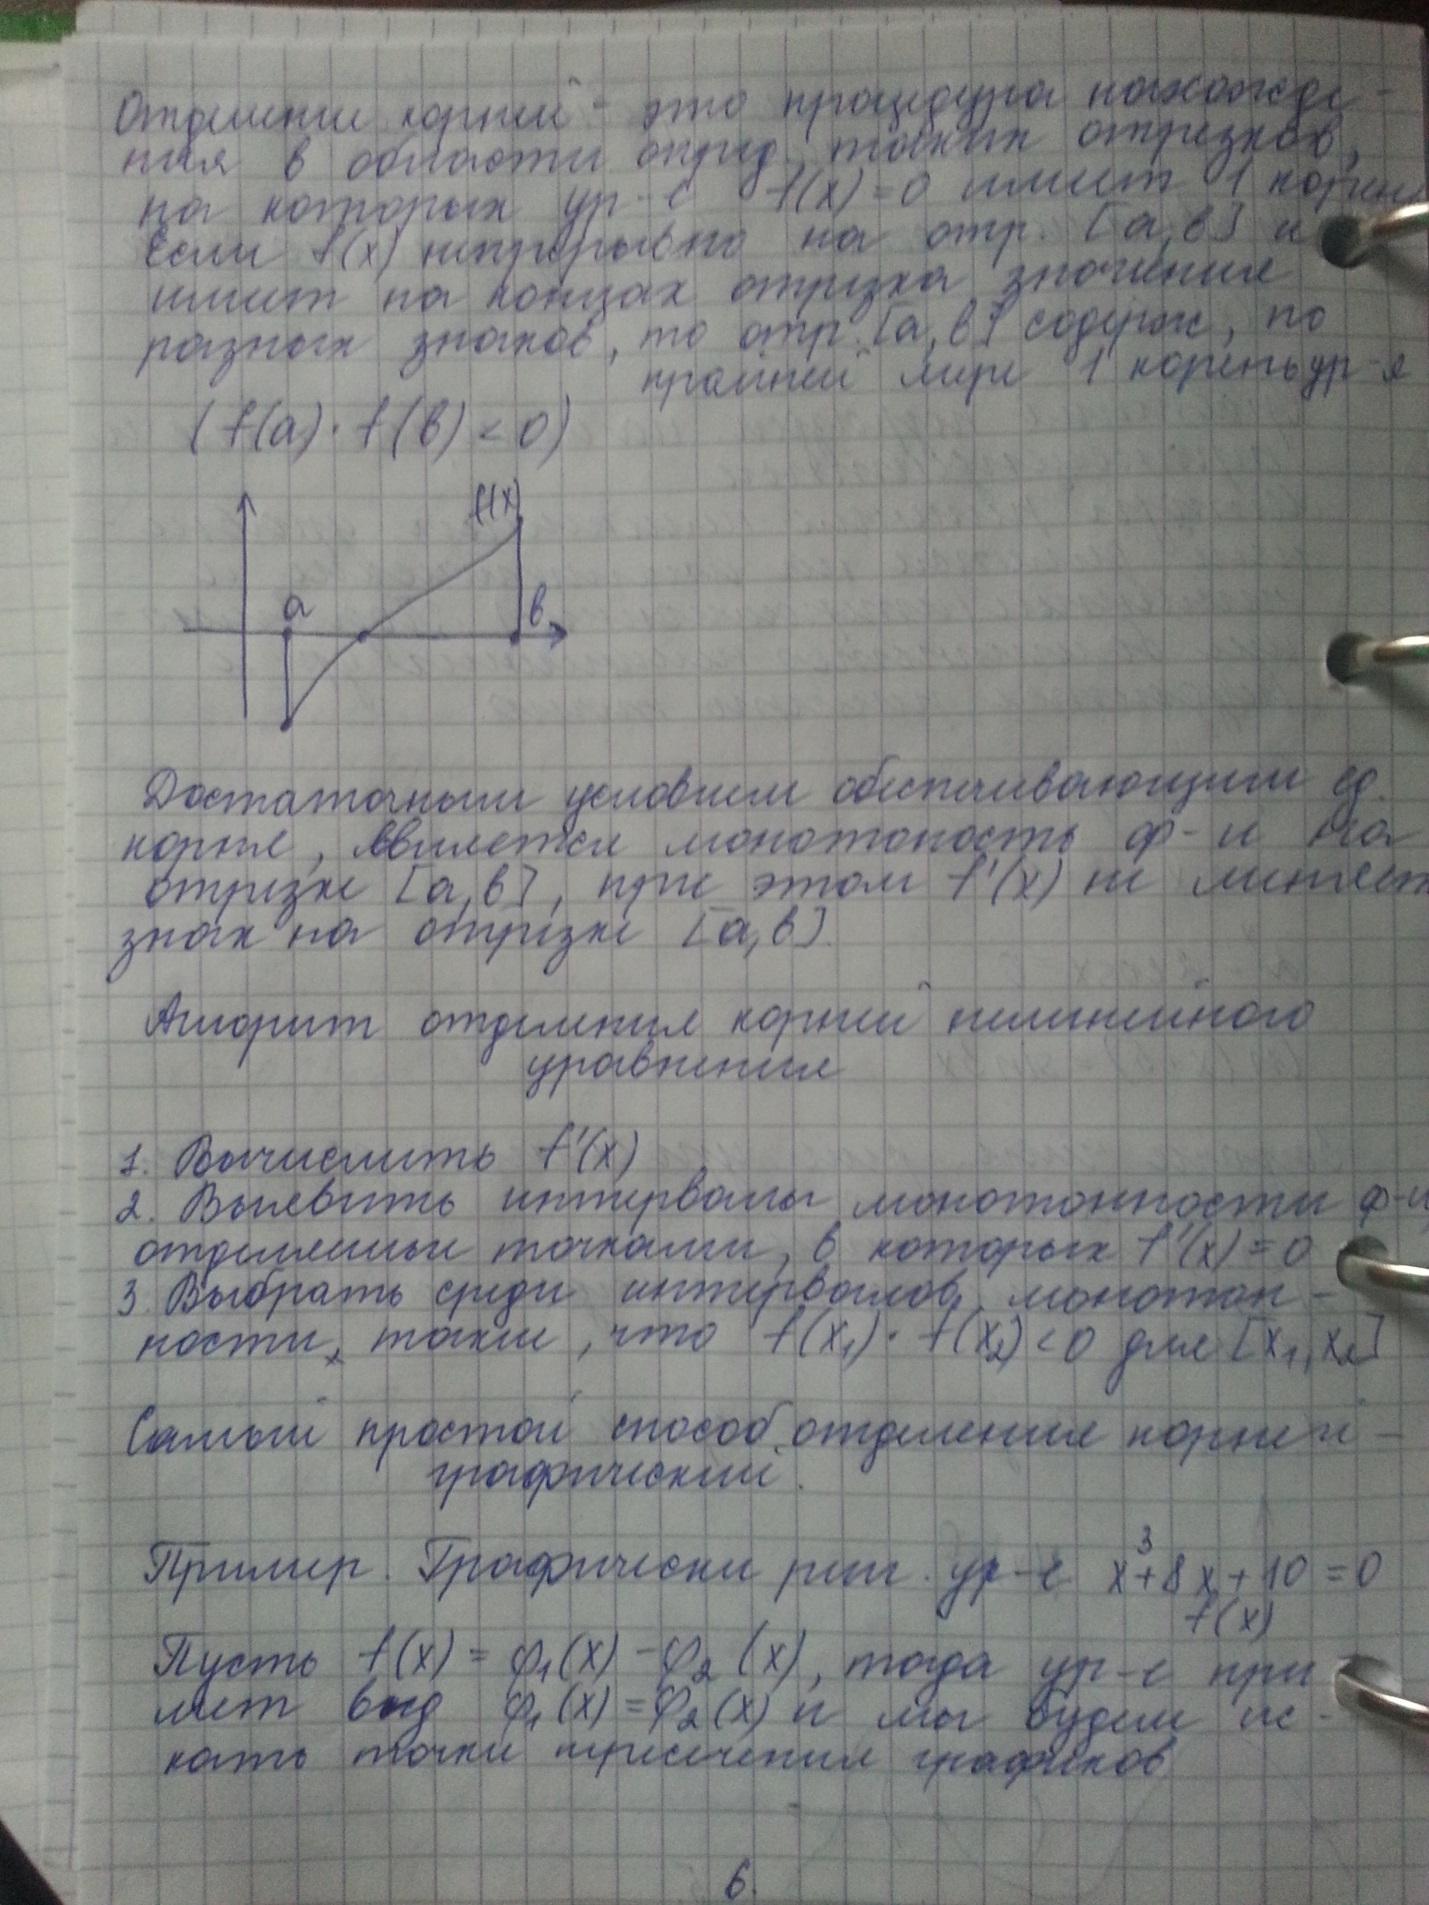 Отделение корней - это процедура нахожде-
ния в области опред. таких отрезков,
на которых ур-е f(x)=0 имеет 1 корень
Если f(x) непрерывно на отр. [a,b] и
имеет на концах отрезка значения
разных знаков, то отр. [a,b] содерж, по
крайней мере 1 корень ур-я
(f(a)·f(b)<0)
f(x)
a
b
Достаточным условием обеспечивающим ед.
корня, является монотоность ф-и на
отрезке [a,b], при этом f'(x) не меняет
знак на отрезке [a,b].
Алгорит отделения корней нелинейного
уравнения
1. Вычислить f'(x)
2. Выявить интервалы монотонности ф-и
отделенные точками, в которых f'(x)=0
3. Выбрать среди интервалов монотон-
ности, такие, что f(x₁)·f(x₂)<0 для [x₁,x₂]
Самый простой способ отделения корней -
графический.
Пример. Графически реш. ур-е x³+8x+10=0
f(x)
Пусть f(x)=φ₁(x)-φ₂(x), тогда ур-е при
мет вид φ₁(x)=φ₂(x) и мы будем ис-
кать точки пересечения графиков
6.